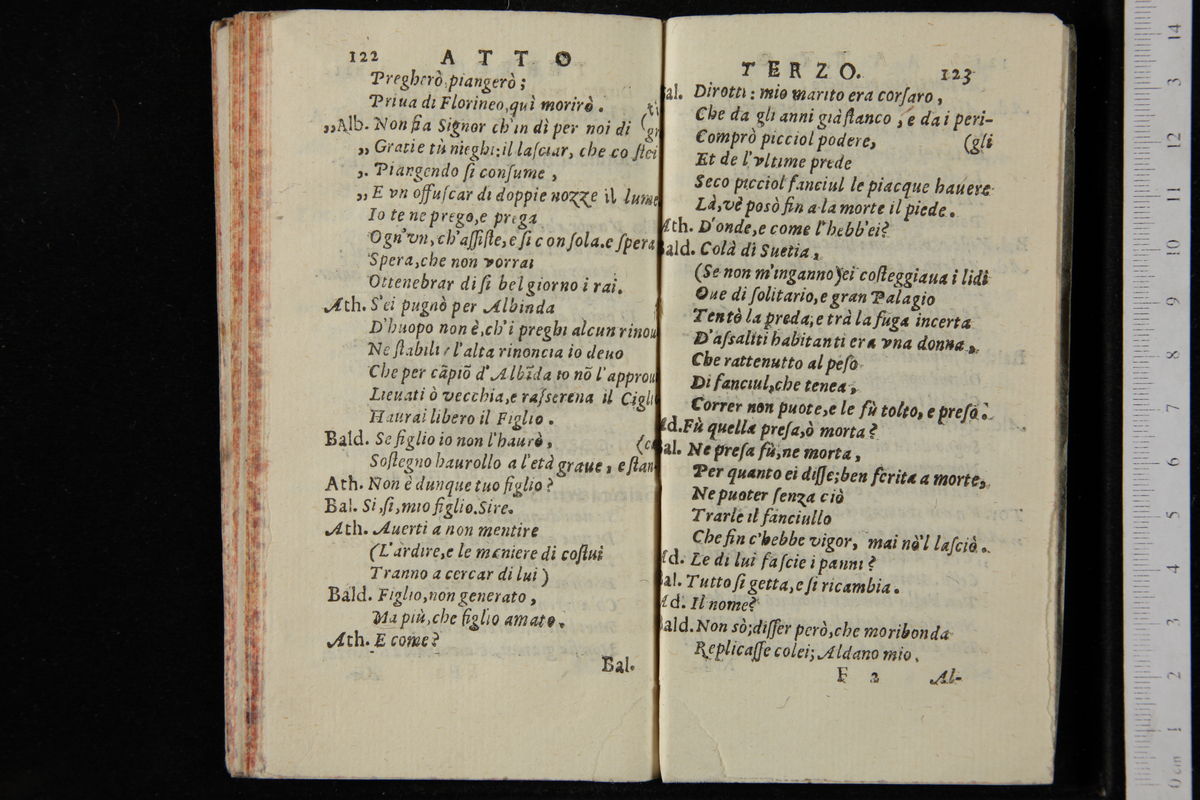 122 ATTO
Pregherò, piangerò;
Priua di Florineo, quì morirò.
„Alb. Non ſia Signor ch'in dì per noi di (
„ Gratie tù nieghi: il laſciar, che coſtei
„ Piangendo ſi conſume,
„ E vn offuſcar di doppie nozze il lume
Io te ne prego, e prega
Ogn'vn, ch'aſſiſte, e ſi conſola. e ſpera
Spera, che non vorrai
Ottenebrar di ſi bel giorno i rai.
Ath. S'ei pugnò per Albinda
D'huopo non è, ch'i preghi alcun rinou
Ne ſtabili l'alta rinoncia io deuo
Che per cãpiõ d'Albĩda io nõ l'approu
Lieuati ò vecchia, e raſſerena il Cigl
Haurai libero il Figlio.
Bald. Se figlio io non l'haurò,
Soſtegno haurollo a l'età graue, e ſtan
Ath. Non è dunque tuo figlio?
Bal. Si, ſi, mio figlio. Sire.
Ath. Auerti a non mentire
(L'ardire, e le maniere di coſtui
Tranno a cercar di lui)
Bald. Figlio, non generato,
Ma più, che figlio amato.
Ath. E come?
Bal.
TERZO. 123
al. Dirotti: mio marito era corſaro,
Che da gli anni già ſtanco, e da i peri-
Comprò picciol podere, (gli
Et de l'vltime prede
Seco picciol fanciul le piacque hauere
Là, vè posò fin a la morte il piede.
Ath. D'onde, e come l'hebb'ei?
Bald. Colà di Suetia,
(Se non m'inganno) ei coſteggiaua i lidi
Oue di ſolitario, e gran Palagio
Tentò la preda; e trà la fuga incerta
D'aſsaliti habitanti era vna donna,
Che rattenutto al peſo
Di fanciul, che tenea,
Correr non puote, e le fù tolto, e preſo.
d. Fù quella preſa, ò morta?
al. Ne preſa fù, ne morta,
Per quanto ei diſſe; ben ferita a morte,
Ne puoter ſenza ciò
Trarle il fanciullo
Che fin c'hebbe vigor, mai nõ'l laſciò.
d. Le di lui faſcie i panni?
al. Tutto ſi getta, e ſi ricambia.
d. Il nome?
Bald. Non sò; diſſer però, che moribonda
Replicaſſe colei; Aldano mio,
F 2 Al-